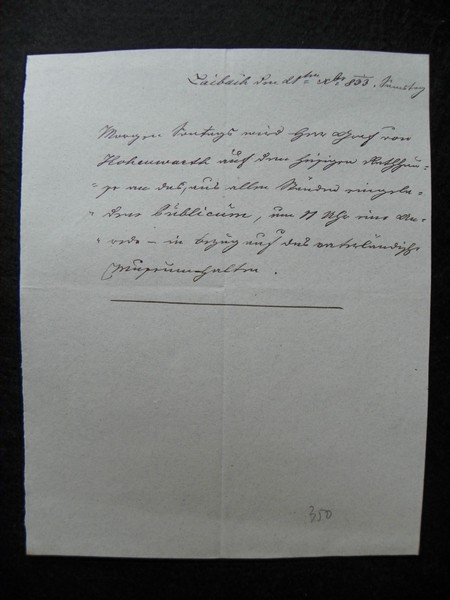 Laibach den 21ten Xber 833. Samstag
Morgen Sontags wird Herr Graf von
Hohenwarth auf dem hiesigen Rathhau-
se an das, aus allen Ständen eingela-
dene Publicum, um 11 Uhr eine An-
rede – in bezug auf das vaterländische
Museum halten.
350